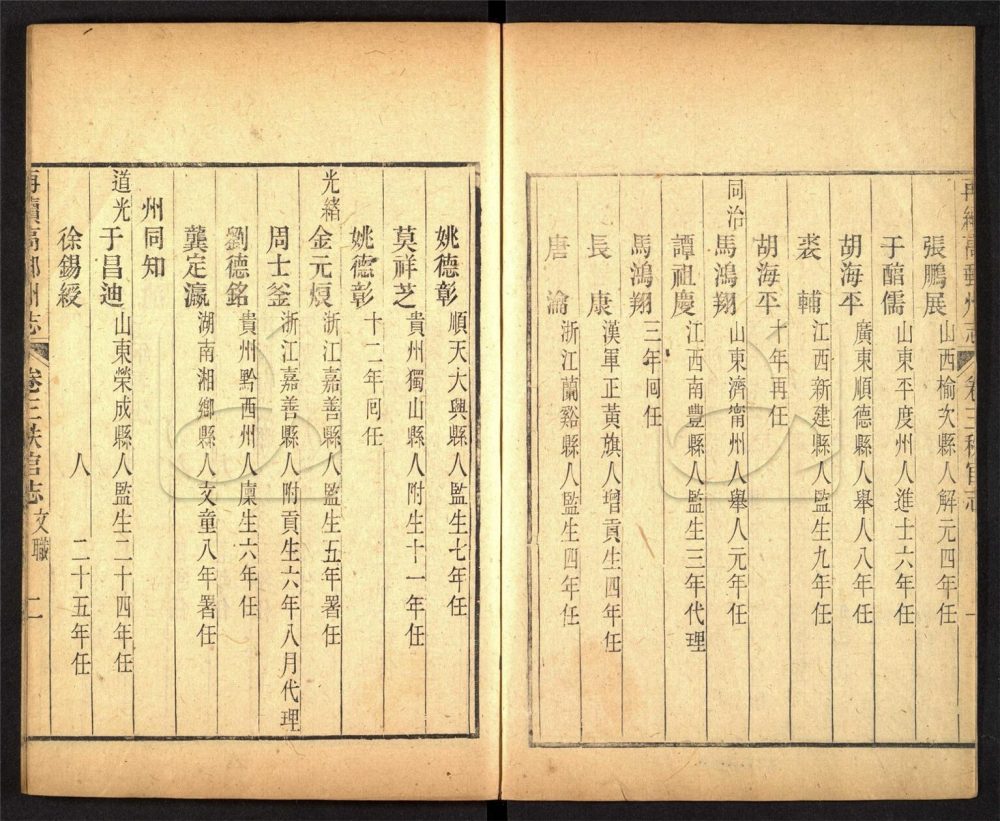 再續高郵州志 卷三秩官志 一
張鵬展 山西榆次縣人解元四年任
于醕儒 山東平度州人進士六年任
胡海平 廣東順德縣人舉人八年任
裘輔 江西新建縣人監生九年任
胡海平 十年再任
同治 馬鴻翔 山東濟甯州人舉人元年任
譚祖慶 江西南豐縣人監生三年代理
馬鴻翔 三年回任
長康 漢軍正黃旗人增貢生四年任
唐瀹 浙江蘭谿縣人監生四年任
姚德彰 順天大興縣人監生七年任
莫祥芝 貴州獨山縣人附生十一年任
姚德彰 十二年回任
光緒 金元烺 浙江嘉善縣人監生五年署任
周士釜 浙江嘉善縣人附貢生六年八月代理
劉德銘 貴州黔西州人廩生六年任
龔定瀛 湖南湘鄉縣人文童八年署任
州同知
道光 于昌迪 山東榮成縣人監生二十四年任
徐錫綬 人 二十五年任
再續高郵州志 卷三秩官志 文職 二